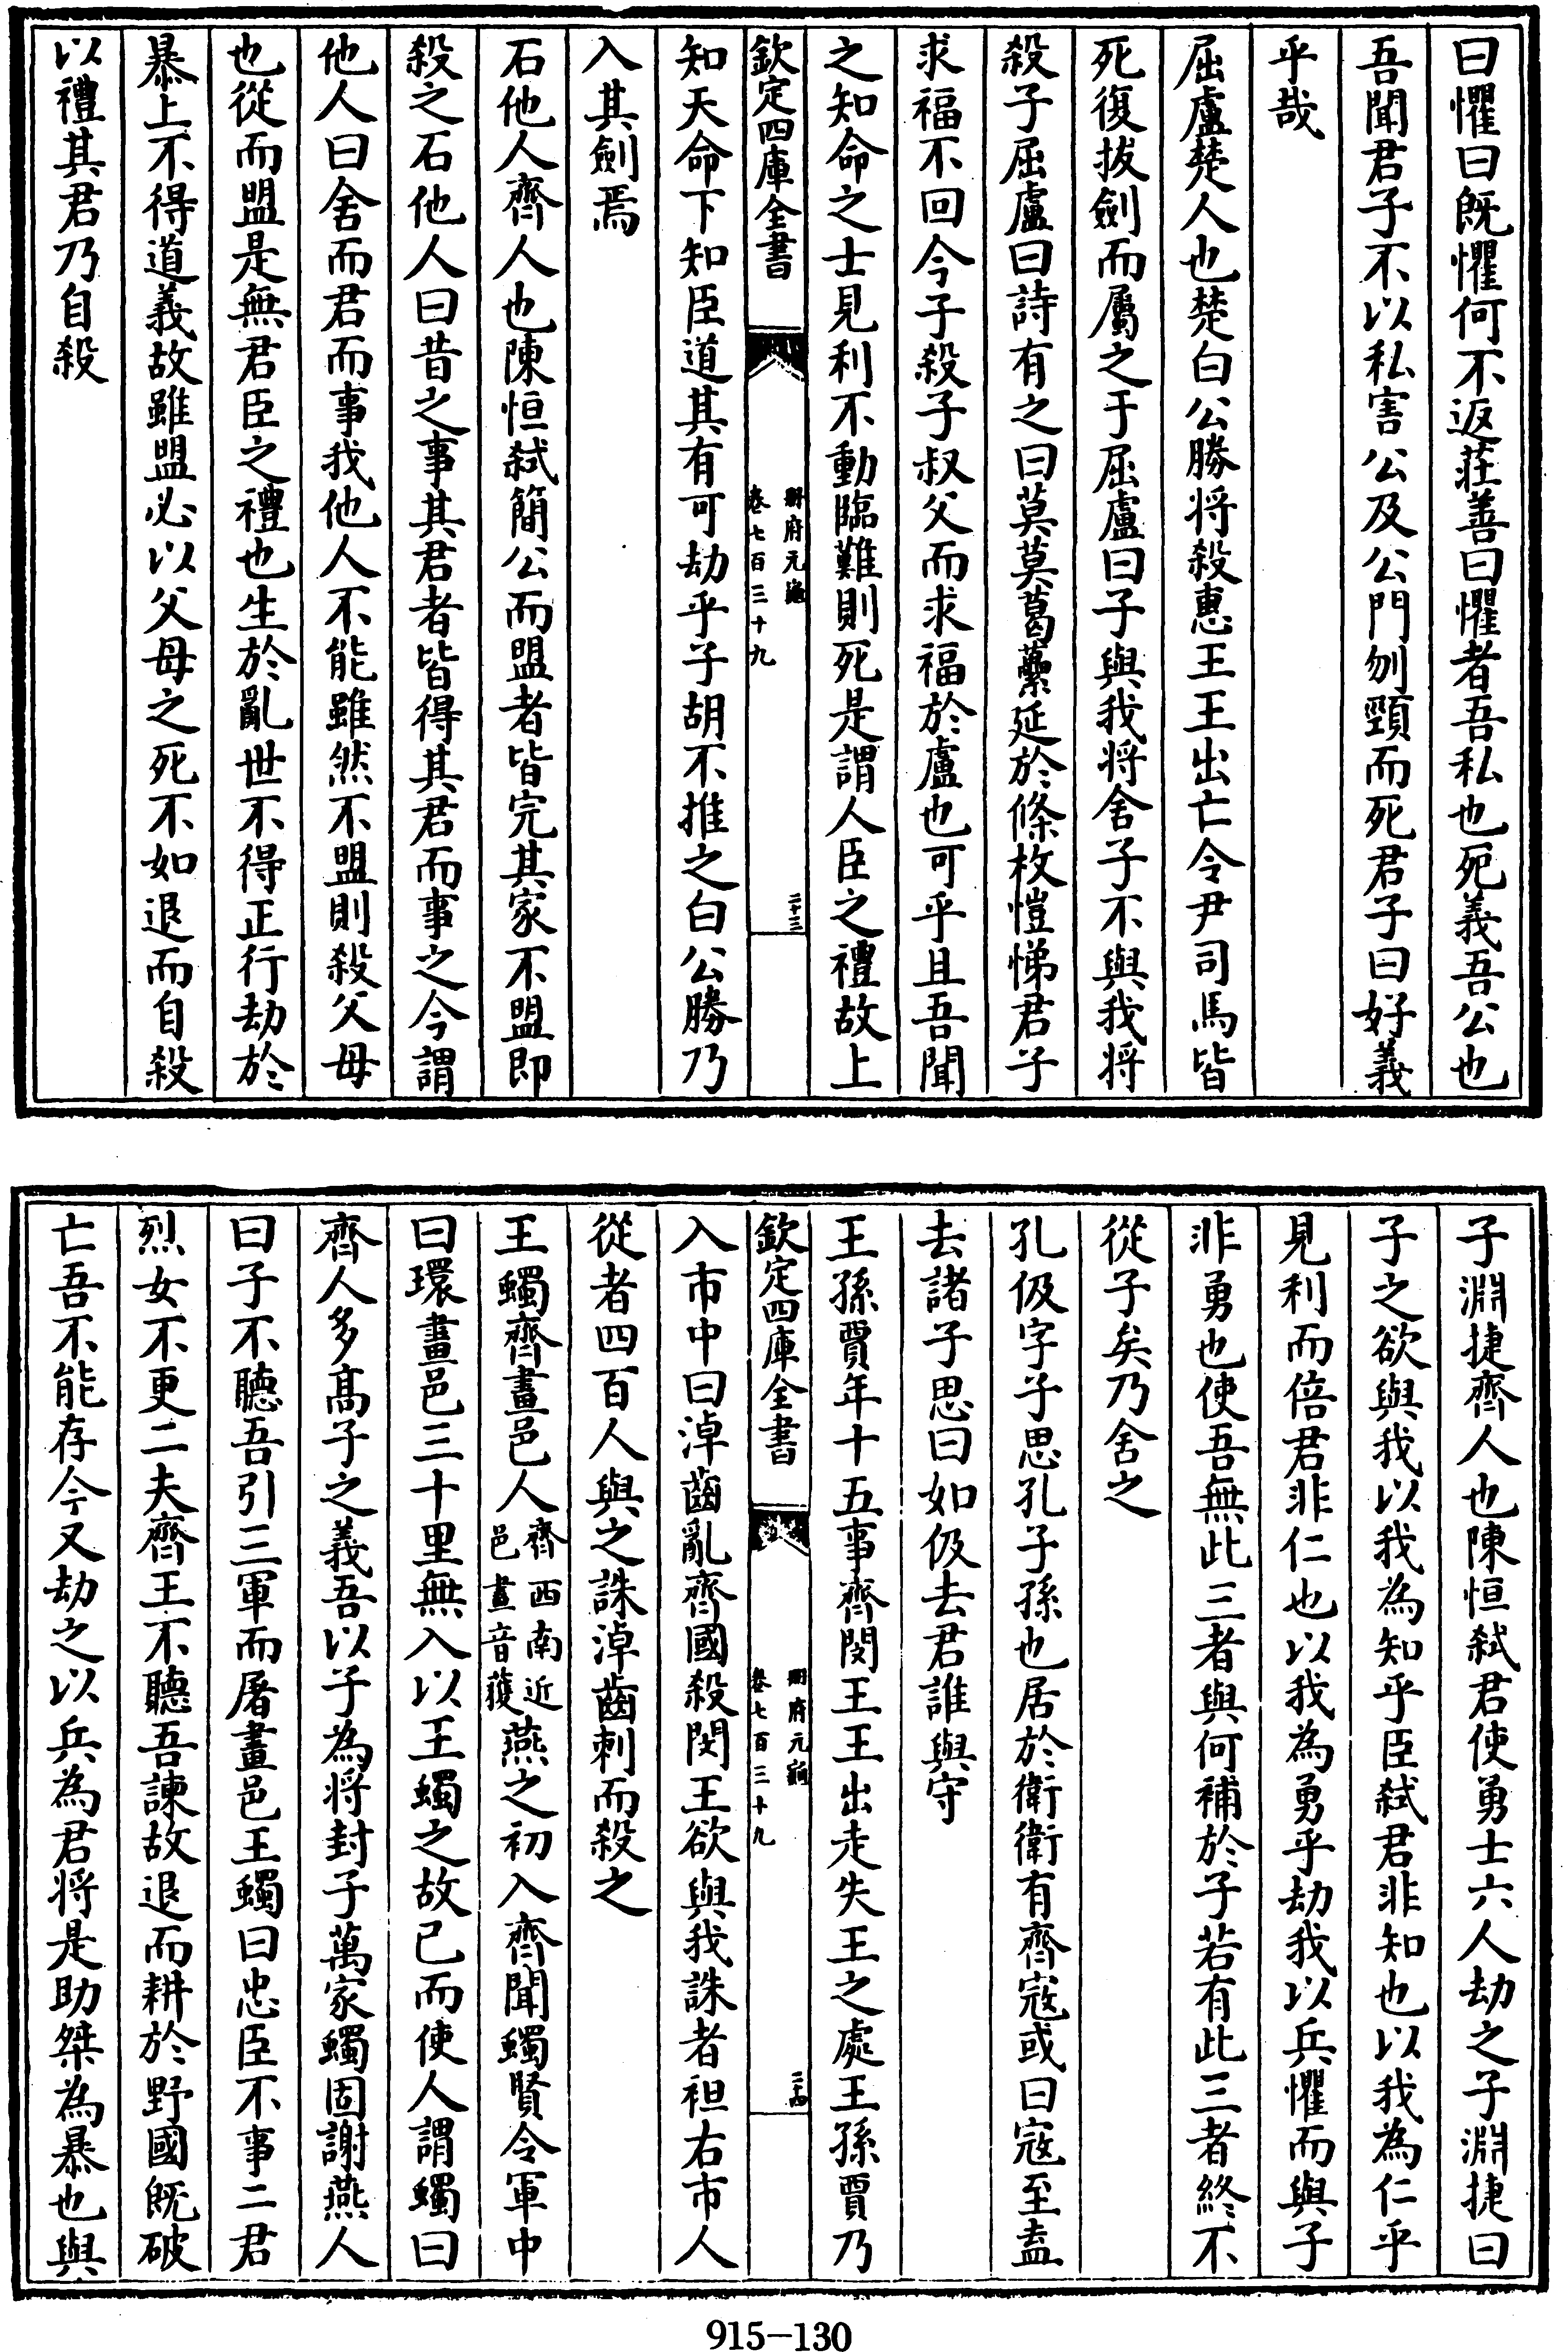 曰懼曰既懼何不返莊善曰懼者吾私也死義吾公也
吾聞君子不以私害公及公門刎頸而死君子曰好義
乎哉
屈盧楚人也楚白公勝将殺惠王王出亡令尹司馬皆
死復拔劍而屬之于屈盧曰子與我将舍子不與我将
殺子屈盧曰詩有之曰莫莫葛藟延於條枚愷悌君子
求福不回今子殺子叔父而求福於盧也可乎且吾聞
之知命之士見利不動臨難則死是謂人臣之禮故上
欽定四庫全書
冊府元龜
卷七百三十九
二十三
知天命下知臣道其有可劫乎子胡不推之白公勝乃
入其劍焉
石他人齊人也陳恒弑簡公而盟者皆完其家不盟即
殺之石他人曰昔之事其君者皆得其君而事之今謂
他人曰舍而君而事我他人不能雖然不盟則殺父母
也從而盟是無君臣之禮也生於亂世不得正行劫於
暴上不得道義故雖盟必以父母之死不如退而自殺
以禮其君乃自殺
子淵捷齊人也陳恒弑君使勇士六人劫之子淵捷曰
子之欲與我以我為知乎臣弑君非知也以我為仁乎
見利而倍君非仁也以我為勇乎劫我以兵懼而與子
非勇也使吾無此三者與何補於子若有此三者終不
從子矣乃舍之
孔伋字子思孔子孫也居於衛衛有齊寇或曰寇至盍
去諸子思曰如伋去君誰與守
王孫賈年十五事齊閔王王出走失王之處王孫賈乃
欽定四庫全書
冊府元龜
卷七百三十九
二十四
入市中曰淖齒亂齊國殺閔王欲與我誅者袒右市人
從者四百人與之誅淖齒刺而殺之
王蠋齊畫邑人齊西南近邑畫音獲燕之初入齊聞蠋賢令軍中
曰環畫邑三十里無入以王蠋之故已而使人謂蠋曰
齊人多髙子之義吾以子為将封子萬家蠋固謝燕人
曰子不聽吾引三軍而屠畫邑王蠋曰忠臣不事二君
烈女不更二夫齊王不聽吾諫故退而耕於野國既破
亡吾不能存今又劫之以兵為君将是助桀為暴也與
915-130